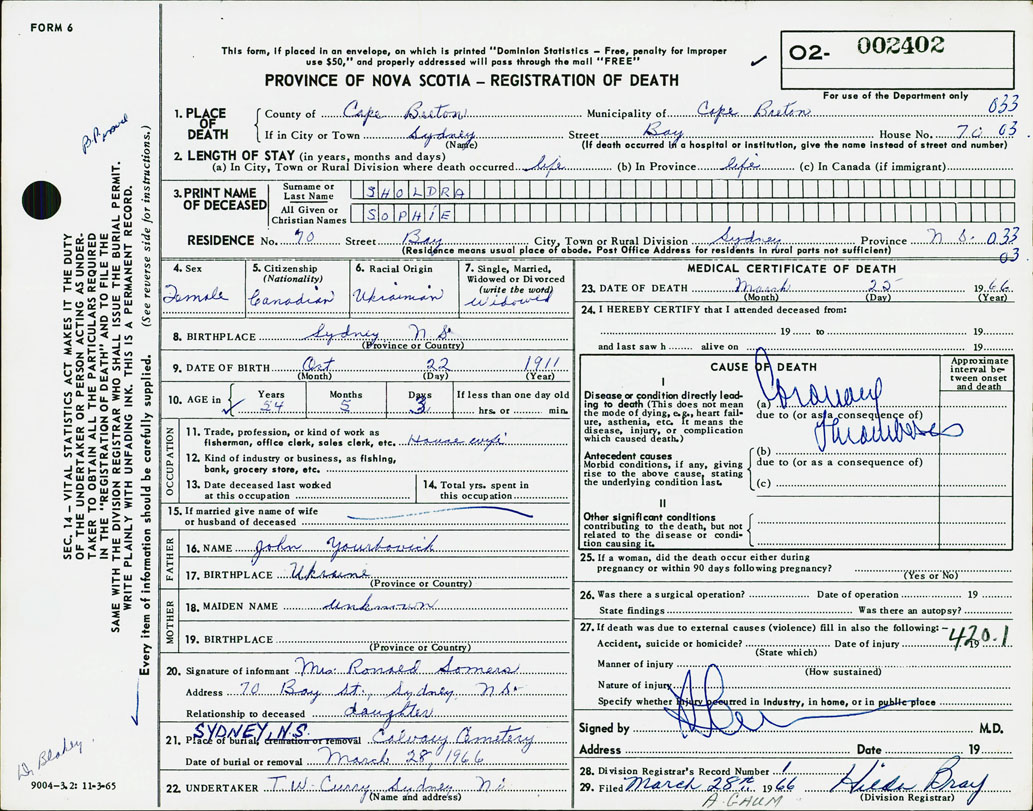 FORM 6
This form, if placed in an envelope, on which is printed "Dominion Statistics – Free, penalty for improper
use $50," and properly addressed will pass through the mail "FREE"
PROVINCE OF NOVA SCOTIA – REGISTRATION OF DEATH
O2- 002402
For use of the Department only
SEC. 14 – VITAL STATISTICS ACT MAKES IT THE DUTY
OF THE UNDERTAKER OR PERSON ACTING AS UNDER-
TAKER TO OBTAIN ALL THE PARTICULARS REQUIRED
IN THE "REGISTRATION OF DEATH" AND TO FILE THE
SAME WITH THE DIVISION REGISTRAR WHO SHALL ISSUE THE BURIAL PERMIT.
WRITE PLAINLY WITH UNFADING INK. THIS IS A PERMANENT RECORD.
Every item of information should be carefully supplied. (See reverse side for instructions.)
1. PLACE OF DEATH
County of Cape Breton Municipality of Cape Breton 033
If in City or Town Sydney Street Bay House No. 70 03
(Name) (If death occurred in a hospital or institution, give the name instead of street and number)
2. LENGTH OF STAY (in years, months and days)
(a) In City, Town or Rural Division where death occurred life (b) In Province life (c) In Canada (if immigrant)
3. PRINT NAME OF DECEASED
Surname or Last Name SHOLDRA
All Given or Christian Names SOPHIE
RESIDENCE No. 70 Street Bay City, Town or Rural Division Sydney Province N S. 033
(Residence means usual place of abode. Post Office Address for residents in rural parts not sufficient) 03
4. Sex Female
5. Citizenship (Nationality) Canadian
6. Racial Origin Ukrainian
7. Single, Married, Widowed or Divorced (write the word) Widowed
8. BIRTHPLACE Sydney N S.
(Province or Country)
9. DATE OF BIRTH Oct 22 1911
(Month) (Day) (Year)
10. AGE in Years 54 Months 5 Days 3 If less than one day old hrs. or min.
OCCUPATION
11. Trade, profession, or kind of work as
fisherman, office clerk, sales clerk, etc. House wife
12. Kind of industry or business, as fishing,
bank, grocery store, etc.
13. Date deceased last worked
at this occupation
14. Total yrs. spent in
this occupation
15. If married give name of wife
or husband of deceased
FATHER
16. NAME John Yourbovich
17. BIRTHPLACE Ukraine
(Province or Country)
MOTHER
18. MAIDEN NAME unknown
19. BIRTHPLACE
(Province or Country)
20. Signature of informant Mrs. Ronald Somers
Address 70 Bay St., Sydney N S.
Relationship to deceased daughter
SYDNEY, N.S.
21. Place of burial, cremation or removal Calvary Cemetery
Date of burial or removal March 28, 1966
22. UNDERTAKER T. W. Curry Sydney NS
(Name and address)
9004-3.2: 11-3-65
MEDICAL CERTIFICATE OF DEATH
23. DATE OF DEATH March 25 1966
(Month) (Day) (Year)
24. I HEREBY CERTIFY that I attended deceased from:
19 to 19
and last saw h alive on 19
CAUSE OF DEATH
Approximate interval be- tween onset and death
I
Disease or condition directly lead-
ing to death (This does not mean
the mode of dying, e.g., heart fail-
ure, asthenia, etc. It means the
disease, injury, or complication
which caused death.)
(a) Coronary
due to (or as a consequence of)
Thrombosis
Antecedent causes
Morbid conditions, if any, giving
rise to the above cause, stating
the underlying condition last.
(b)
due to (or as a consequence of)
(c)
II
Other significant conditions
contributing to the death, but not
related to the disease or condi-
tion causing it.
25. If a woman, did the death occur either during
pregnancy or within 90 days following pregnancy?
(Yes or No)
26. Was there a surgical operation? Date of operation 19
State findings Was there an autopsy?
27. If death was due to external causes (violence) fill in also the following:–
420.1
Accident, suicide or homicide? Date of injury 19
(State which)
Manner of injury
(How sustained)
Nature of injury
Specify whether injury occurred in industry, in home, or in public place
Signed by M.D.
Address Date 19
28. Division Registrar's Record Number 1
29. Filed March 28th 1966 Hilda Bray
(Division Registrar)